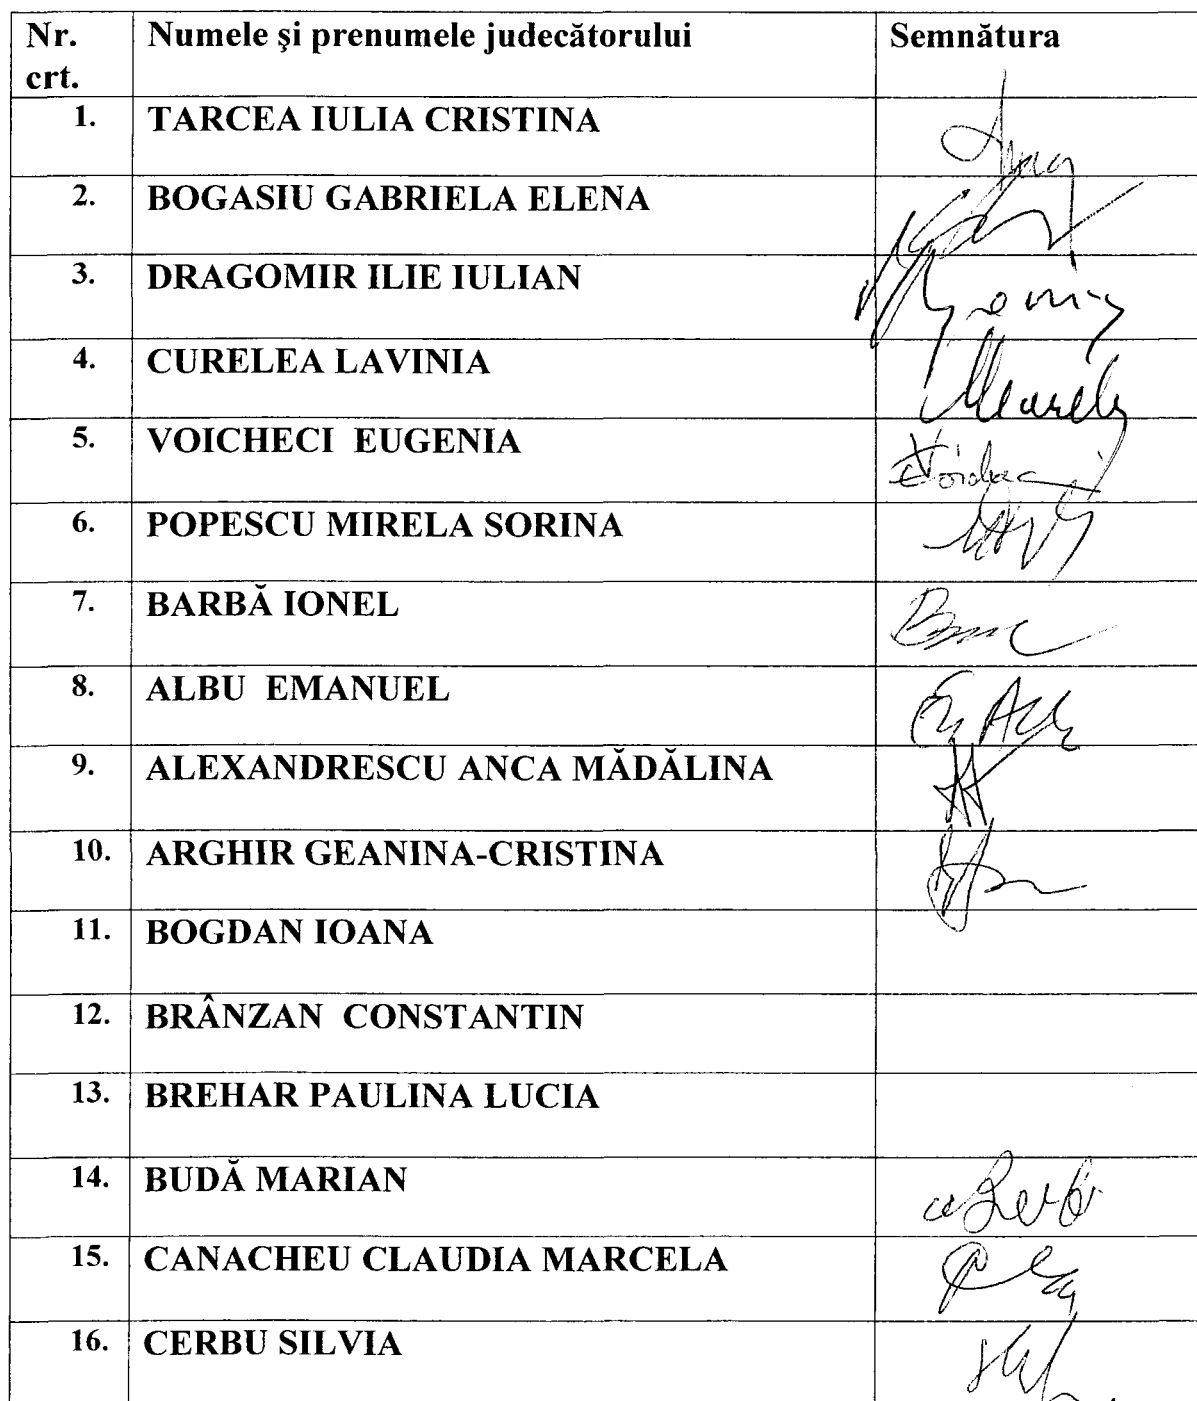 Nr. Numele şi prenumele judecătorului Semnătura
crt.
1. TARCEA IULIA CRISTINA
2. BOGASIU GABRIELA ELENA
3. DRAGOMIR ILIE IULIAN
4. CURELEA LAVINIA
5. VOICHECI EUGENIA
6. POPESCU MIRELA SORINA
7. BARBĂ IONEL
8. ALBU EMANUEL
9. ALEXANDRESCU ANCA MĂDĂLINA
10. ARGHIR GEANINA-CRISTINA
11. BOGDAN IOANA
12. BRÂNZAN CONSTANTIN
13. BREHAR PAULINA LUCIA
14. BUDĂ MARIAN
15. CANACHEU CLAUDIA MARCELA
16. CERBU SILVIA